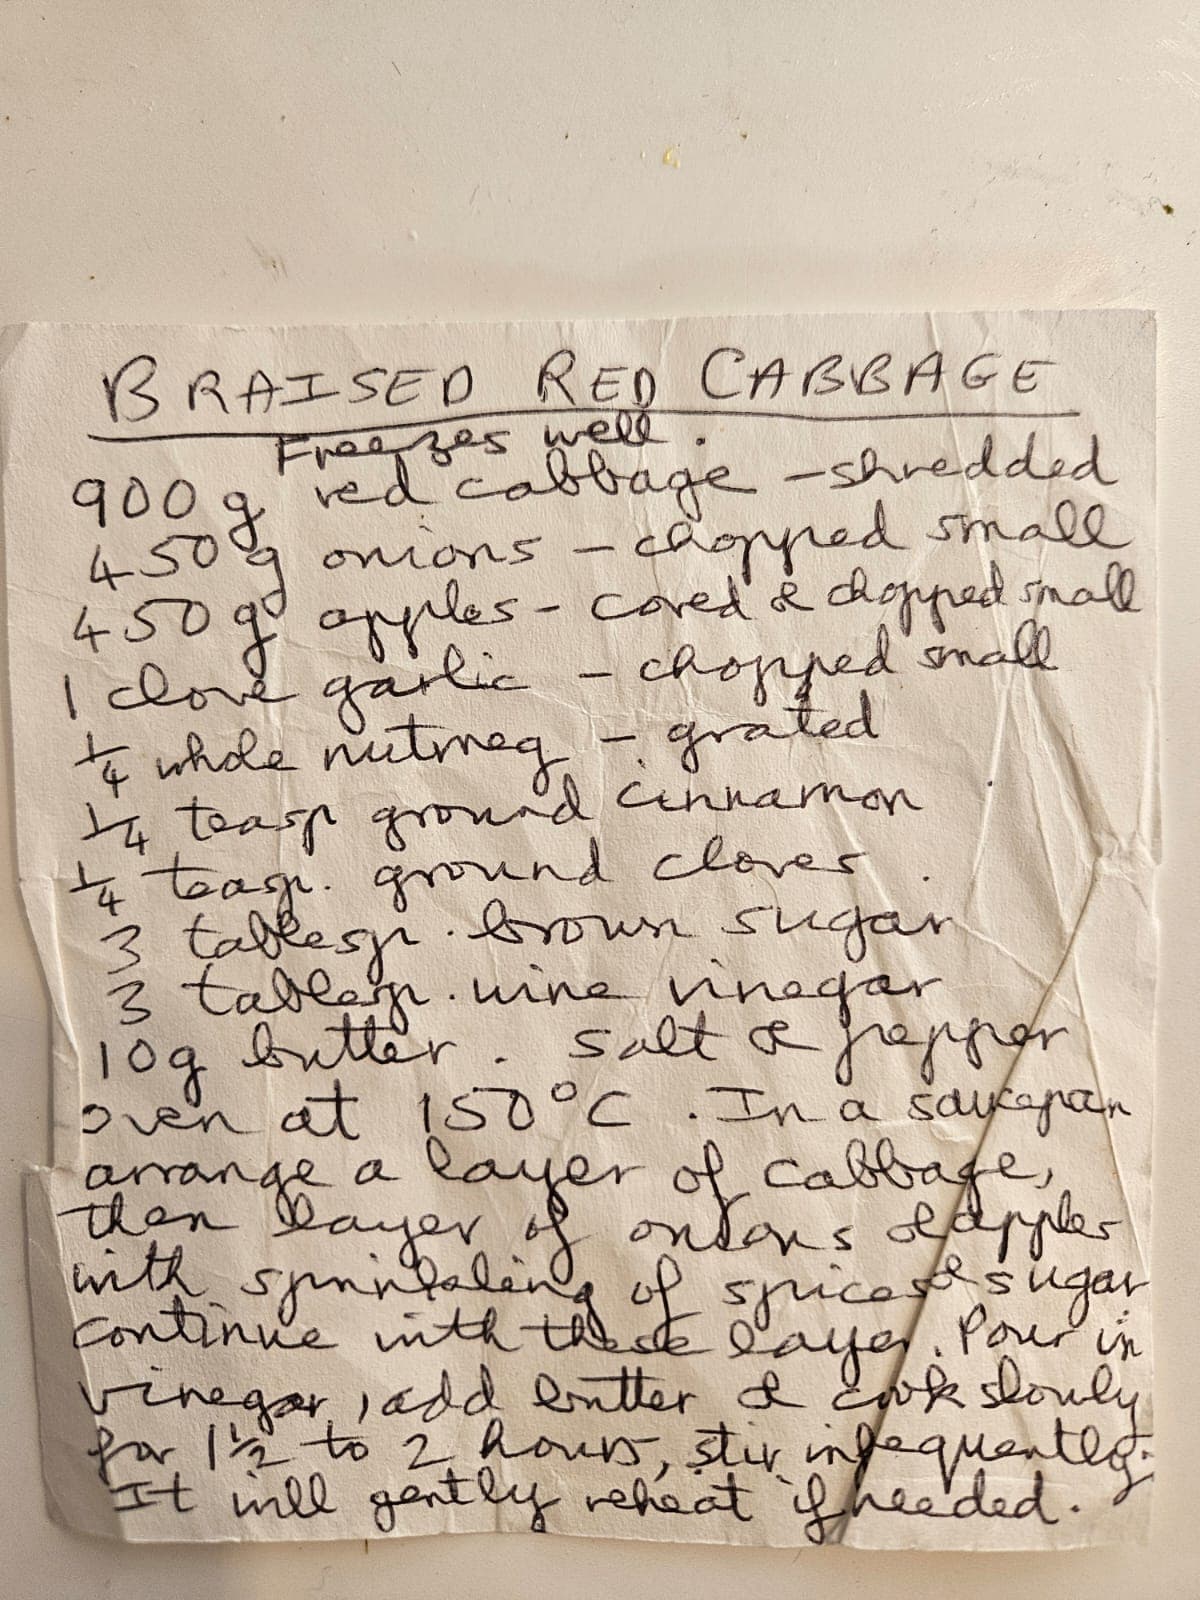 BRAISED RED CABBAGE
Freezes well.
900g red cabbage - shredded
450g onions - chopped small
450g apples - cored & chopped small
1 clove garlic - chopped small
1/4 whole nutmeg - grated
1/4 teasp ground cinnamon
1/4 teasp. ground cloves
3 tablesp. brown sugar
3 tablesp. wine vinegar
10g butter. Salt & pepper
oven at 150°C. In a saucepan
arrange a layer of cabbage,
then layer of onions & apples
with sprinkling of spices & sugar
continue with these layer. Pour in
vinegar, add butter & cook slowly
for 1 1/2 to 2 hours, stir infequently.
It will gently reheat if needed.